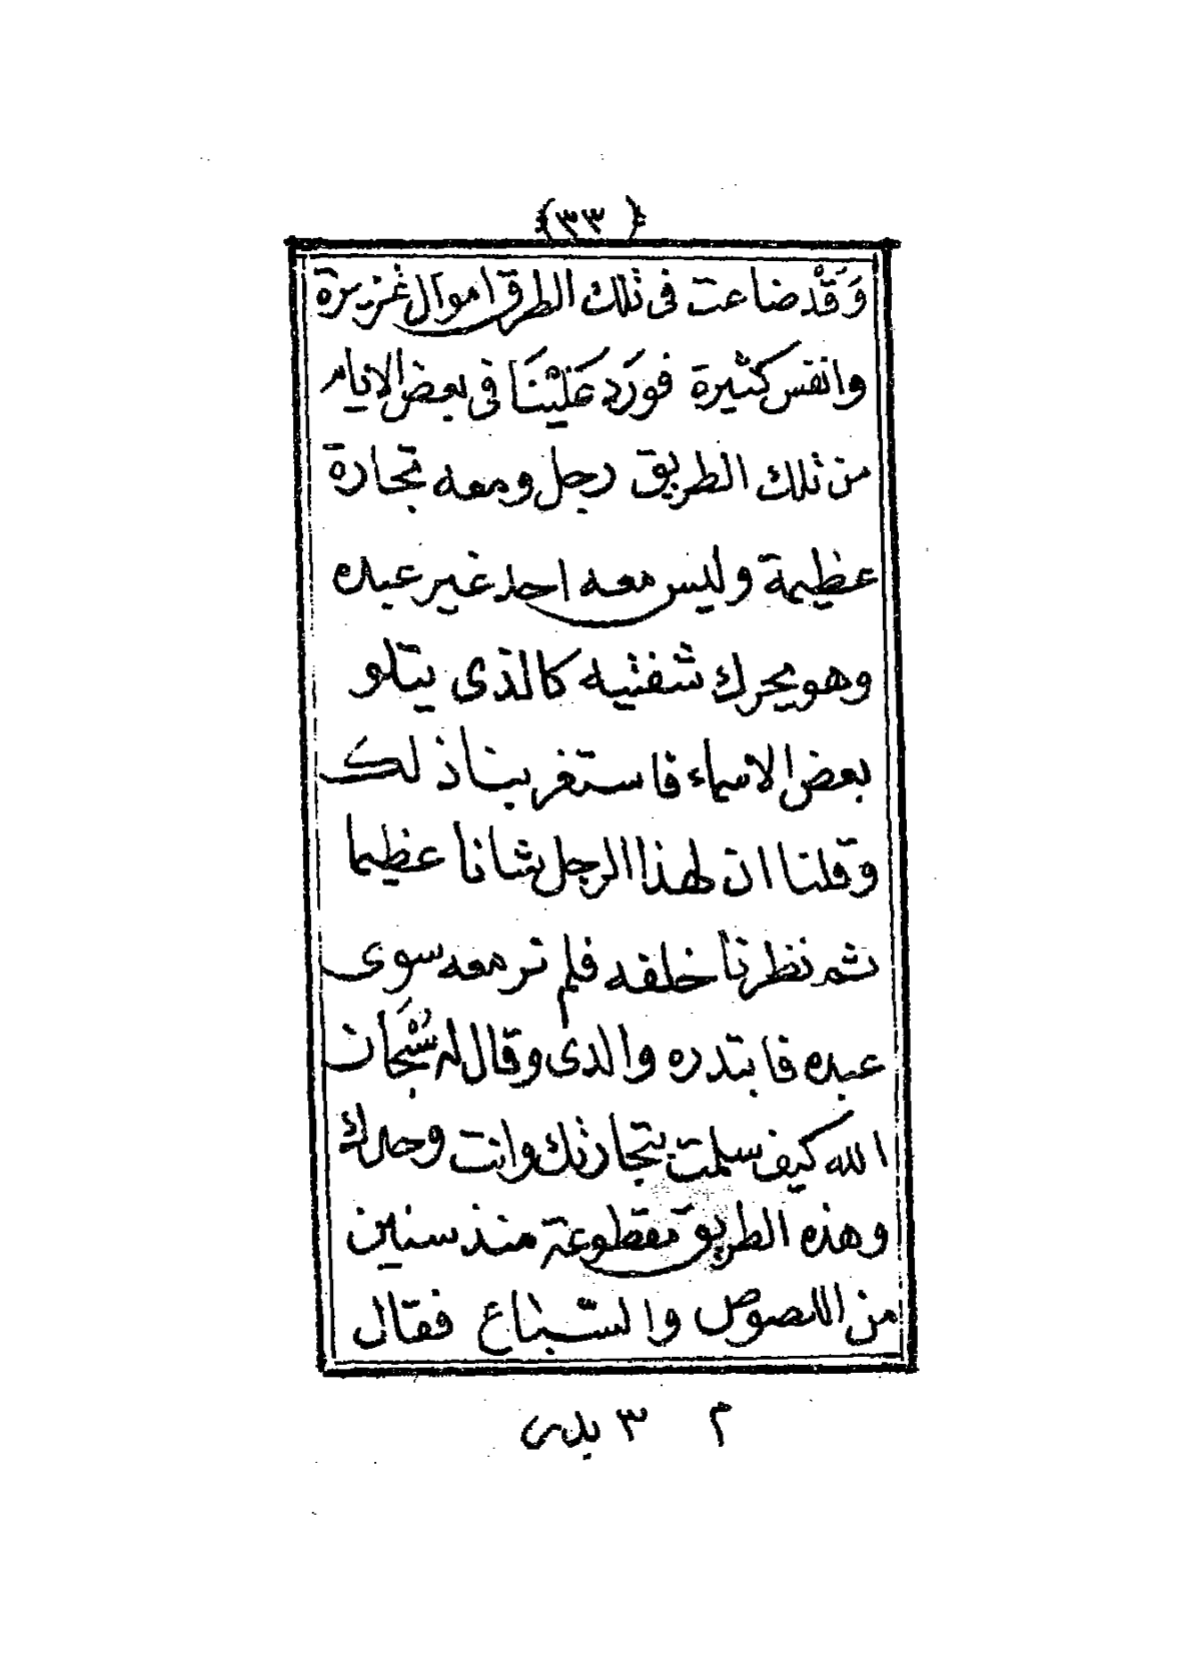 {(٣٣)}
وَقَدْ ضاعت فى تلك الطرق اموال غزيرة
وانفس كثيرة فورَد عَلَيْنَا فى بعض الايام
من تلك الطريق رجل ومعه تجارة
عظيمة وليس معه احد غير عبده
وهو يحرك شفتيه كالذى يتلو
بعض الاسماء فاستغربنا ذلك
وقلنا ان لهذا الرجل شانا عظيما
ثم نظرنا خلفه فلم نر معه سوى
عبده فابتدره والدى وقال له سُبْحَان
الله كيف سلمت بتجارتك وانت وحدك
وهذه الطريق مقطوعة منذ سنين
من اللصوص والسّباع فقال
م ٣ بدرى